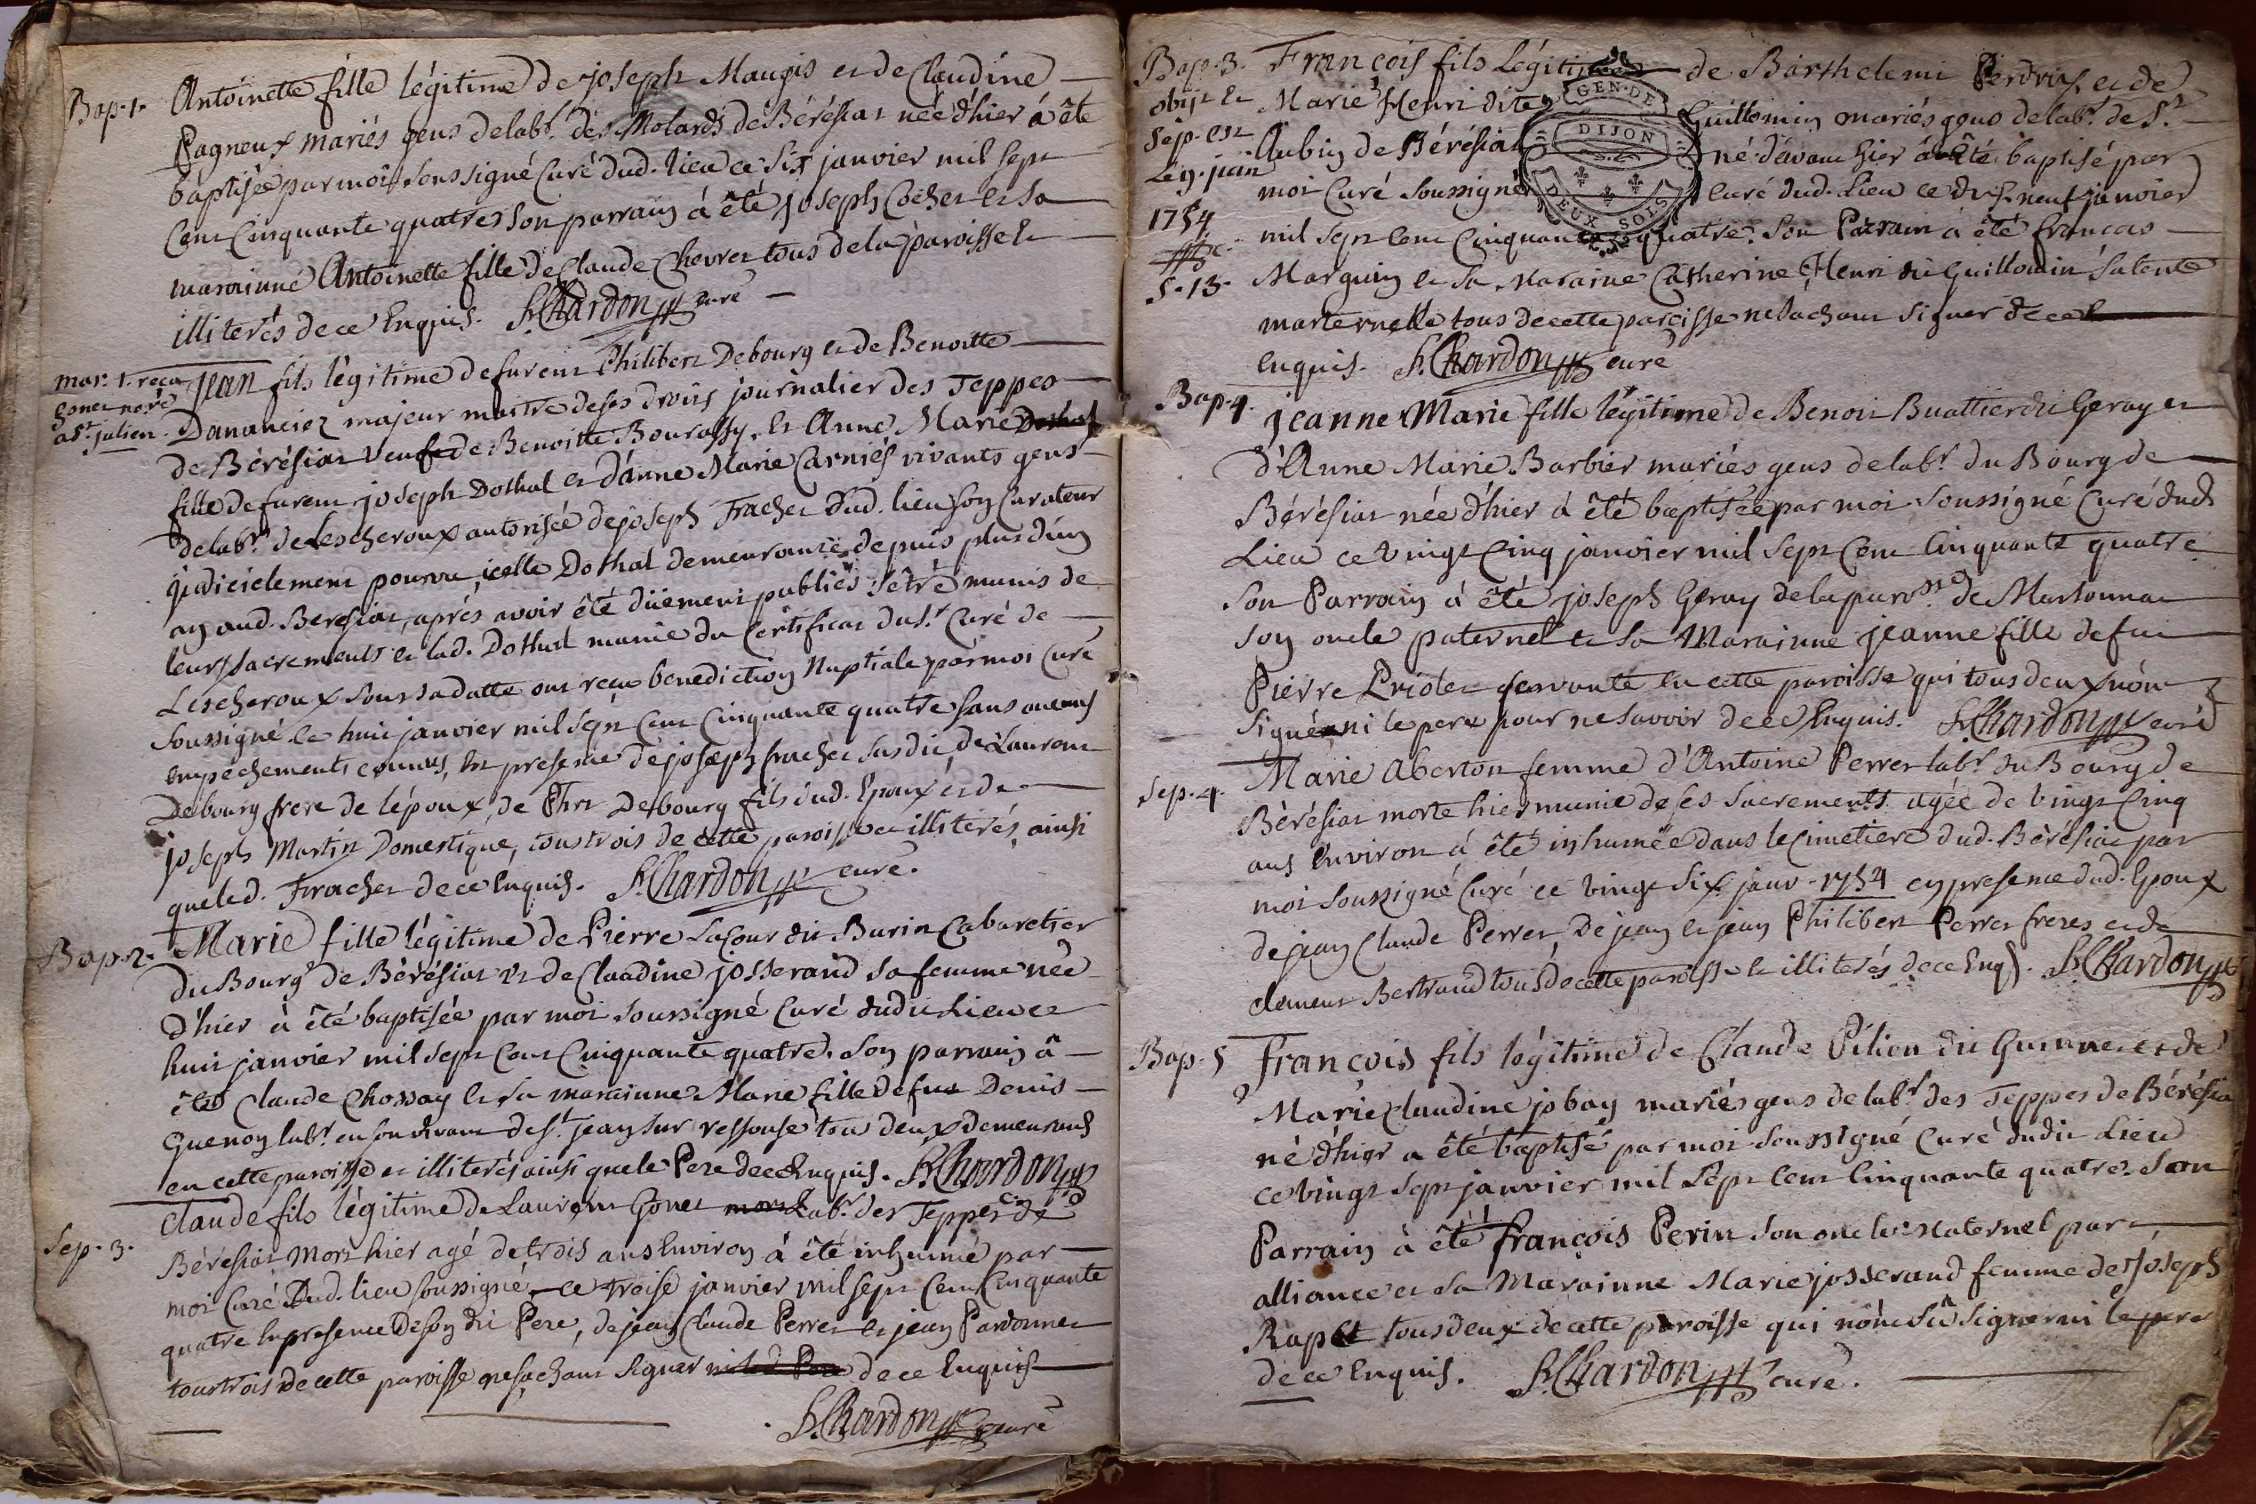 Bap. 1. Antoinette fille légitime de joseph Maugis et de Claudine
Pagneux mariés gens de labr. des Molards de Bérésiat née d'hier á été
baptisée par moi soussigné Curé dud. lieu ce six janvier mil sept
Cent Cinquante quatre Son parrain á été joseph Cochet et sa
marainne Antoinette fille de Claude Chevret tous de la paroisse et
illiterés de ce Enquis. Chardon curé
mar. 1. reçu
a St. julien.
jean fils légitime de furent Philibert Debourg et de Benoitte
Dananciez majeur maitre de ses droits journalier des Teppes
de Bérésiat veuf de Benoitte Bourassy, et Anne Marie Dothal
fille de furent joseph Dothal et d'anne Marie Carniés vivants gens
de labr. de Lescheroux autorisée de joseph Frachet dud. lieu son Curateur
judicielement pourvu, icelle Dothal demeurante depuis plus d'un
an aud. Beresiat, aprés avoir été düement publiés, s'être munis de
leurs sacrements et lad. Dothal munie du Certificat du Sr. Curé de
Lescheroux sous sa datte ont reçu benediction Nuptiale par moi Curé
soussigné le huit janvier mil sept Cent Cinquante quatre sans aucuns
empechements connus, En presence de joseph frachet susdit, de Laurent
Debourg frere de l'époux, de Phrt Debourg fils dud. Epoux et de
joseph Martin Domestique, tous trois de cette paroisse et illiterés, ainsi
que led. Frachet de ce Enquis. Chardon curé.
Bap. 2. Marie fille légitime de Pierre Lacour dit Burin Cabaretier
du Bourg de Bérésiat et de Claudine josserand sa femme née
d'hier á été baptisée par moi soussigné Curé dudit Lieu ce
huit janvier mil sept Cent Cinquante quatre. Son parrain â
été Claude Chossay et sa marainne Marie fille de fut Denis
Guenoy labr. en son vivant de St. jean sur ressouse tou deux demeurants
en cette paroisse et illiterés ainsi que le Pere de ce Enquis. Chardon
Sep. 3. Claude fils légitime de Laurent Gonet Labr. des Teppes de
Bérésiat mort hier agé de trois ans Environ á été inhumé par
moi Curé Dud. lieu soussigné ce treise janvier mil sept Cent Cinquante
quatre En presence De son dit Pere, de jean Claude Perret et jean Pardonnet
tous trois de cette paroisse ne sachant signer de ce Enquis
Chardon curé
Bap. 3. François fils Légitime de Barthelemi Perdrix et de
obijt et Marie Henri dite Guillomin mariés gens de labr. de St.
sep. est Aubin de Bérésiat né d'avant hier á été baptisé par
le 9. juin moi Curé soussigné curé dud. Lieu ce dix neuf janvier
1754 mil sept Cent Cinquante quatre. Son Parrain á été françois
S. 13. Marguin et sa Maraine Catherine Henri dit Guillomin sa tente
maternelle tous de cette paroisse ne sachant signer de ce
enquis. Chardon curé
GEN. DE
DIJON
DEUX SOLS
Bap. 4. jeanne Marie fille légitime de Benoit Buattier dit Geray et
d'Anne Marie Barbier mariés gens de labr. du Bourg de
Bérésiat née d'hier á été baptisée par moi soussigné Curé dud.
Lieu ce vingt Cinq janvier mil sept Cent Cinquante quatre
Son Parrain á été joseph Geray de la paroisse de Marsonnat
son oncle paternel et sa Marainne jeanne fille de fut
Pierre Priolet servante en cette paroisse qui tous deux n'ont
signé ni le pere pour ne savoir de ce Enquis. Chardon curé
Sep. 4. Marie Aberton femme d'Antoine Perret labr. du Bourg de
Bérésiat morte hier munie de ses sacrements agée de vingt Cinq
ans Environ á été inhumée dans le Cimetiere dud. Bérésiat par
moi soussigné Curé ce vingt six janv. 1754 en presence dud. Epoux
de jean Claude Perret, De jean et jean Philibert Perret freres et de
clement Bertrand tous de cette paroisse et illiterés de ce Enq. Chardon
Bap. 5 François fils légitime de Claude Pilion dit Guinnet et de
Marie Claudine jobay mariés gens de labr. des Teppes de Bérésiat
né d'hier a été baptisé par moi soussigné Curé dudit Lieu
ce vingt sept janvier mil sept Cent Cinquante quatre Son
Parrain á été françois Perin son oncle Maternel par
alliance et sa Marainne Marie josserand femme de joseph
Raplet tous deux de cette paroisse qui n'ont sû signer ni le pere
de ce Enquis. Chardon curé.